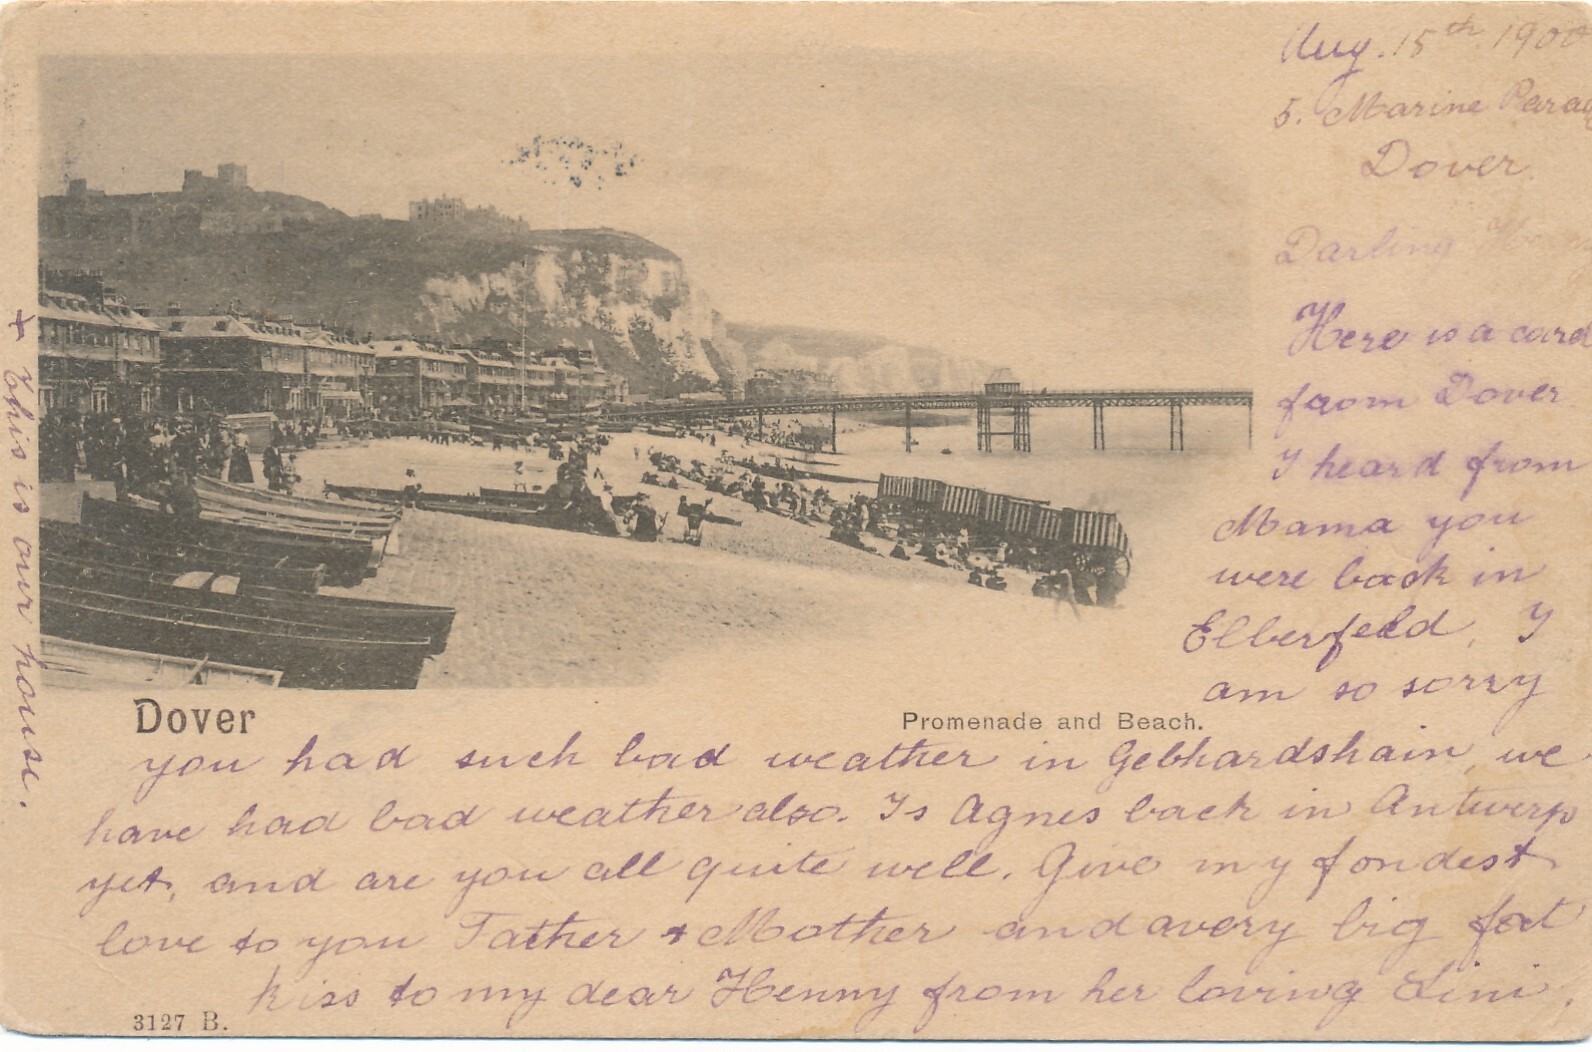 Aug. 15th 1900
5. Marine Parad
Dover.
Darling
Here is a card
from Dover
I heard from
Mama you
were back in
Elberfeld. I
am so sorry
Dover
Promenade and Beach.
you had such bad weather in Gebhardshain, we
have had bad weather also. Is Agnes back in Antwerp
yet, and are you all quite well. Give my fondest
love to you Father + Mother and a very big fat
kiss to my dear Henny from her loving Lini.
3127 B.
+ this is our house.